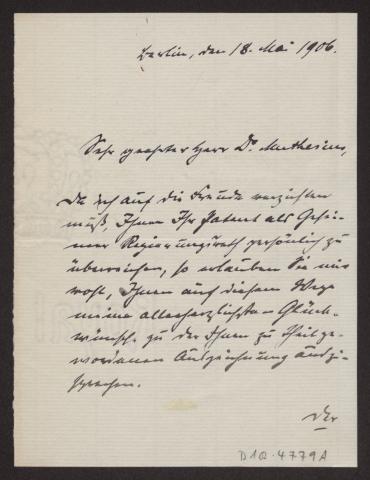 Berlin, den 18. Mai 1906.
Sehr geehrter Herr Dr. Muthesius,
Da ich auf die Freude verzichten
muß, Ihnen Ihr Patent als Gehei-
mer Regierungsrath persönlich zu
überreichen, so erlauben Sie mir
wohl, Ihnen auf diesem Wege
meine allerherzlichsten Glück-
wünsche zu der Ihnen zu Theil ge-
wordenen Auszeichnung auszu-
sprechen.
Der
D1Q-4779A